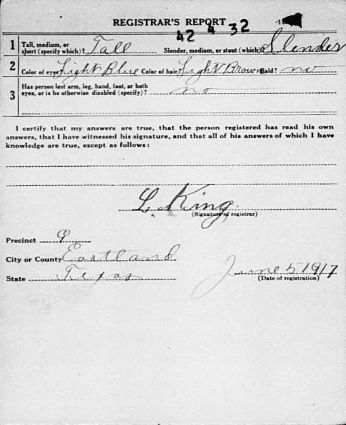 REGISTRAR'S REPORT
42 4 32
1 Tall, medium, or short (specify which)? Tall Slender, medium, or stout (which)? Slender
2 Color of eyes? Light Blue Color of hair? Light Brown Bald? no
3 Has person lost arm, leg, hand, foot, or both eyes, or is he otherwise disabled (specify)? no
I certify that my answers are true, that the person registered has read his own
answers, that I have witnessed his signature, and that all of his answers of which I have
knowledge are true, except as follows:
L. King
(Signature of registrar)
Precinct 9
City or County Eastland
State Texas
June 5 1917
(Date of registration)